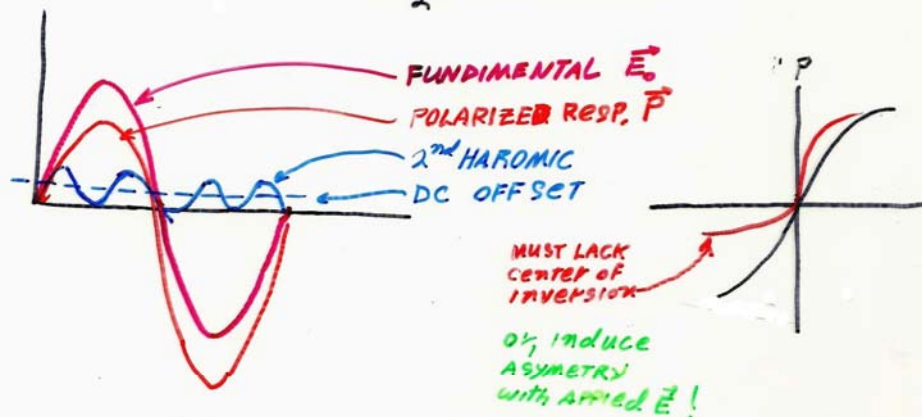 2
FUNDIMENTAL E₀
POLARIZED RESP. P
2nd HAROMIC
DC OFFSET
P
MUST LACK
center of
inversion
or, induce
ASYMETRY
with APPIED E !